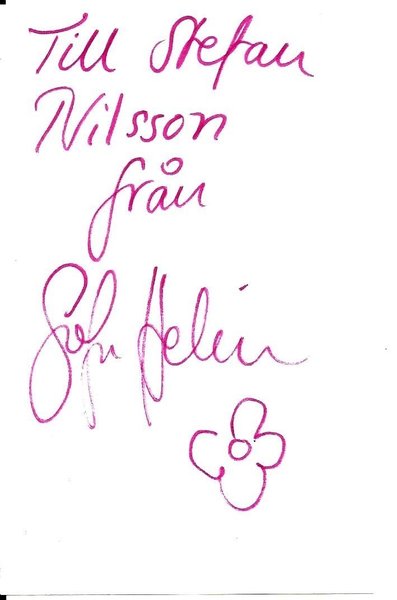 Till Stefan
Nilsson
från
Sofia Helin